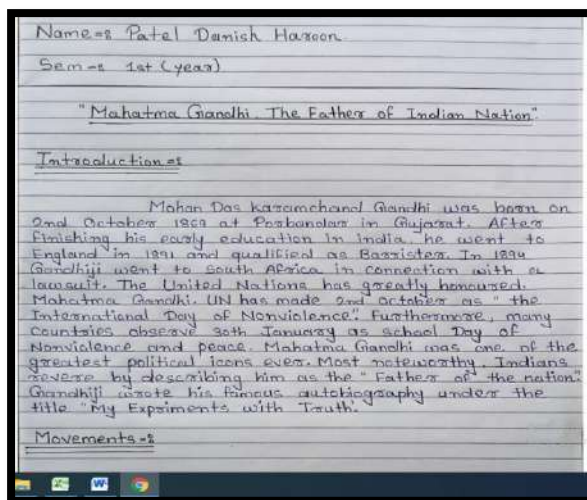 Name =: Patel Danish Haroon
Sem =: 1st (year)
"Mahatma Gandhi. The Father of Indian Nation"
Introduction =:
Mohan Das Karamchand Gandhi was born on
2nd October 1869 at Porbandar in Gujarat. After
finishing his early education in india, he went to
England in 1891 and qualified as Barrister. In 1894
Gandhiji went to South Africa in connection with a
lawsuit. The United Nations has greatly honoured.
Mahatma Gandhi. UN has made 2nd October as "the
International Day of Nonviolence". Furthermore, many
Countries observe 30th January as school Day of
Nonviolence and peace. Mahatma Gandhi was one of the
greatest political icons ever. Most noteworthy, Indians
revere by describing him as the "Father of the nation".
Gandhiji wrote his famous autobiography under the
title "My Expriments with Truth'.
Movements =: